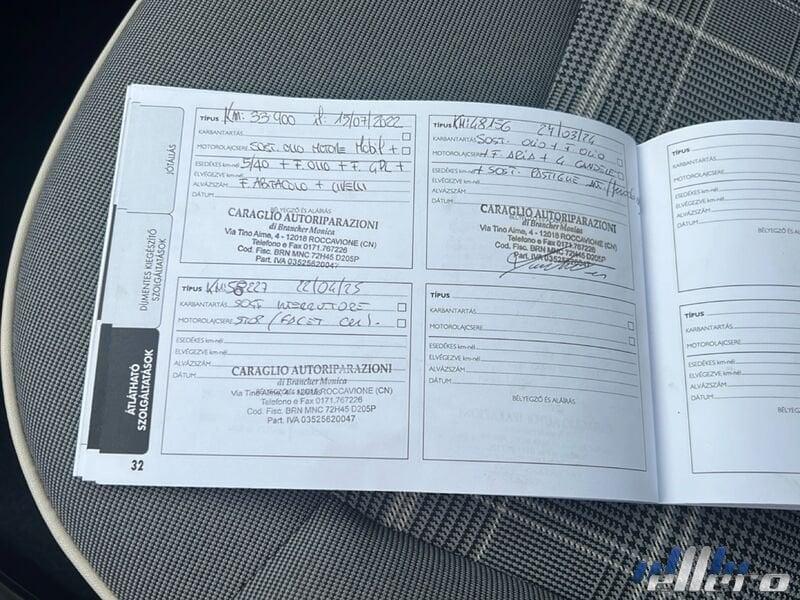 JÓTÁLLÁS
DÍJMENTES KIEGÉSZÍTŐ
SZOLGÁLTATÁSOK
ÁTLÁTHATÓ
SZOLGÁLTATÁSOK
32
TÍPUS KM: 33900 15/07/2022
KARBANTARTÁS
MOTOROLAJCSERE SOST. OLIO MOTORE Mobil +
ESEDÉKES km-nél 5/40 + F. OLIO + F. GPL +
ELVÉGEZVE km-nél
ALVÁZSZÁM F. ABITACOLO + LIVELLI
DÁTUM
BÉLYEGZŐ ÉS ALÁÍRÁS
CARAGLIO AUTORIPARAZIONI
di Brancher Monica
Via Tino Aime, 4 - 12018 ROCCAVIONE (CN)
Telefono e Fax 0171.767226
Cod. Fisc. BRN MNC 72H45 D205P
Part. IVA 03525620047
TÍPUS KM:48156 24/03/24
KARBANTARTÁS SOST. OLIO + F. OLIO
MOTOROLAJCSERE + F. ARIA + 4 CANDELE
ESEDÉKES km-nél + SOST. PASTIGLIE
ELVÉGEZVE km-nél
ALVÁZSZÁM
DÁTUM
BÉLYEGZŐ ÉS ALÁÍRÁS
CARAGLIO AUTORIPARAZIONI
di Brancher Monica
Via Tino Aime, 4 - 12018 ROCCAVIONE (CN)
Telefono e Fax 0171.767226
Cod. Fisc. BRN MNC 72H45 D205P
Part. IVA
TÍPUS KM 58227 22/04/25
KARBANTARTÁS SOST INTERRUTTORE
MOTOROLAJCSERE STOP
ESEDÉKES km-nél
ELVÉGEZVE km-nél
ALVÁZSZÁM
DÁTUM
CARAGLIO AUTORIPARAZIONI
di Brancher Monica
BÉLYEGZŐ ÉS ALÁÍRÁS
Via Tino Aime, 4 - 12018 ROCCAVIONE (CN)
Telefono e Fax 0171.767226
Cod. Fisc. BRN MNC 72H45 D205P
Part. IVA 03525620047
TÍPUS
KARBANTARTÁS
MOTOROLAJCSERE
ESEDÉKES km-nél
ELVÉGEZVE km-nél
ALVÁZSZÁM
DÁTUM
BÉLYEGZŐ ÉS ALÁÍRÁS
TÍPUS
KARBANTARTÁS
MOTOROLAJCSERE
ESEDÉKES km-nél
ELVÉGEZVE km-nél
ALVÁZSZÁM
DÁTUM
BÉLYEGZŐ ÉS
TÍPUS
KARBANTARTÁS
MOTOROLAJCSERE
ESEDÉKES km-nél
ELVÉGEZVE km-nél
ALVÁZSZÁM
DÁTUM
BÉLYEGZŐ